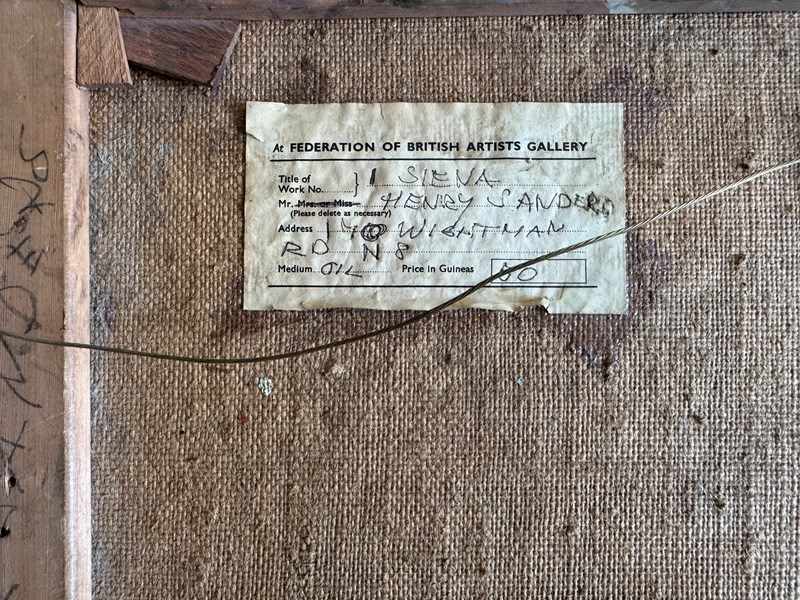 At FEDERATION OF BRITISH ARTISTS GALLERY
Title of
Work No. } 1 SIENA
Mr. Mrs. or Miss HENRY SANDERS
(Please delete as necessary)
Address 140 WIGHTMAN
RD N 8
Medium OIL Price in Guineas 50